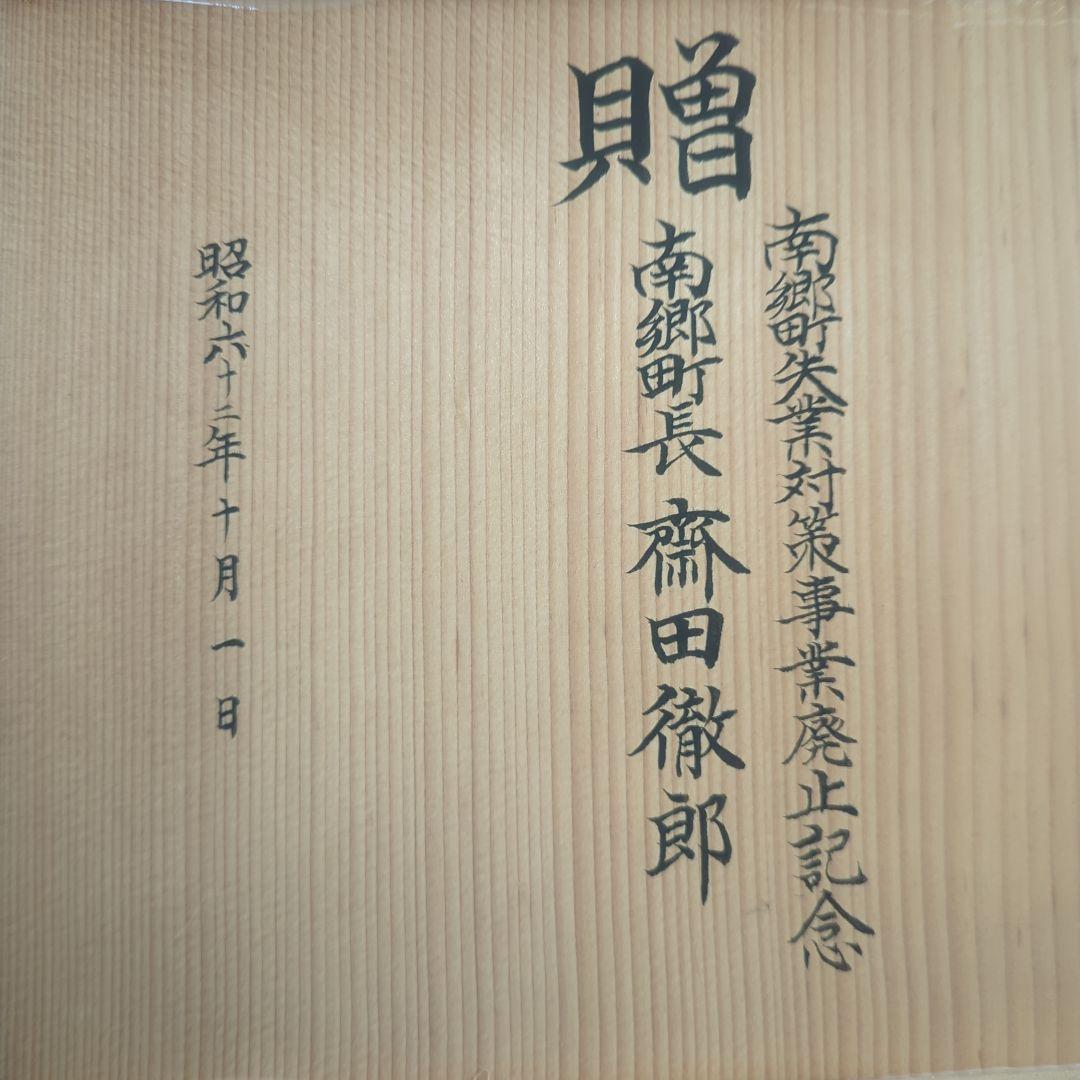 贈
南郷町失業対策事業廃止記念
南郷町長 齋田徹郎
昭和六十二年十月一日